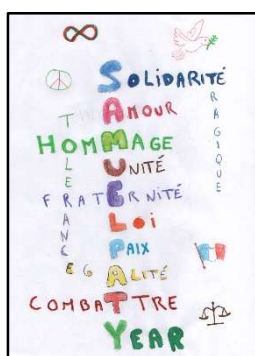 SOLIDARITÉ
AMOUR
HOMMAGE
UNITÉ
FRATERNITÉ
LOI
PAIX
EGALITÉ
COMBATTRE
YEAR
TOLERANCE
TRAGIQUE